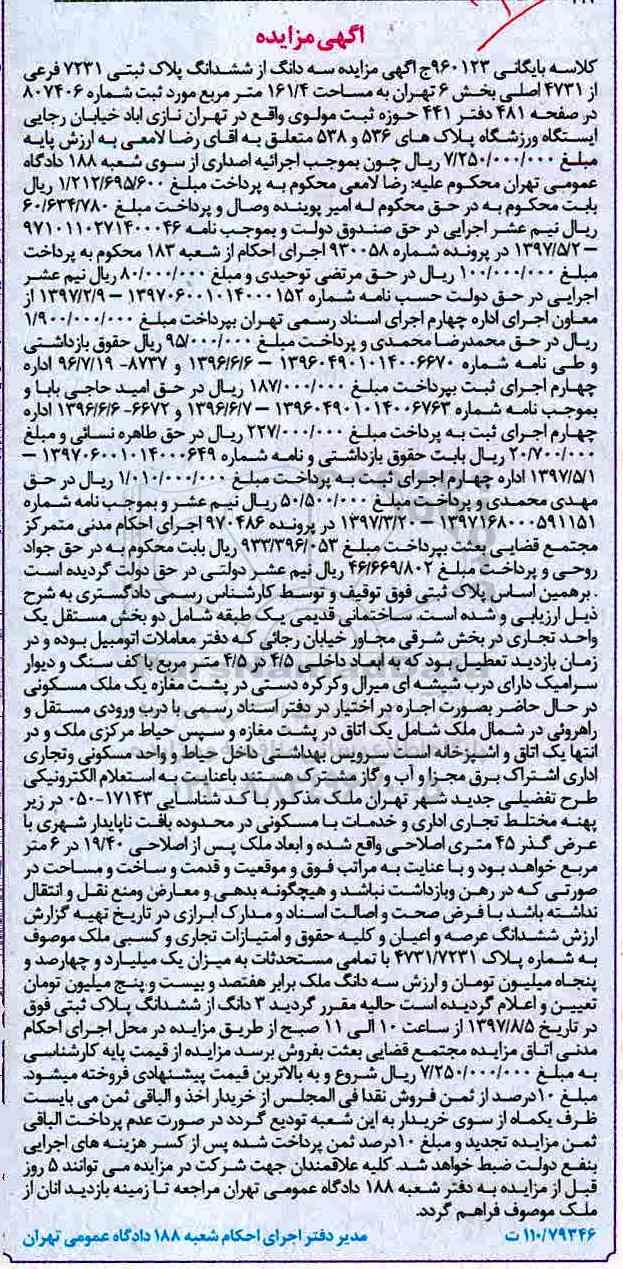 آگهی مزایده
کلاسه بایگانی ۹۶۰۱۲۳ج آگهی مزایده سه دانگ از ششدانگ پلاک ثبتی ۷۲۳۱ فرعی
از ۴۷۳۱ اصلی بخش ۶ تهران به مساحت ۱۶۱/۴ متر مربع مورد ثبت شماره ۸۰۷۴۰۶
در صفحه ۴۸۱ دفتر ۴۴۱ حوزه ثبت مولوی واقع در تهران نازی اباد خیابان رجایی
ایستگاه ورزشگاه پلاک های ۵۳۶ و ۵۳۸ متعلق به اقای رضا لامعی به ارزش پایه
مبلغ ۷/۲۵۰/۰۰۰/۰۰۰ ریال چون بموجب اجرائیه اصداری از سوی شعبه ۱۸۸ دادگاه
عمومی تهران محکوم علیه: رضا لامعی محکوم به پرداخت مبلغ ۱/۲۱۲/۶۹۵/۶۰۰ ریال
بابت محکوم به در حق محکوم له امیر پوینده وصال و پرداخت مبلغ ۶۰/۶۳۴/۷۸۰
ریال نیم عشر اجرایی در حق صندوق دولت و بموجب نامه ۹۷۱۰۱۱۰۲۷۱۴۰۰۰۴۶
– ۱۳۹۷/۵/۲ در پرونده شماره ۹۳۰۰۵۸ اجرای احکام از شعبه ۱۸۳ محکوم به پرداخت
مبلغ ۱۰۰/۰۰۰/۰۰۰ ریال در حق مرتضی توحیدی و مبلغ ۸۰/۰۰۰/۰۰۰ ریال نیم عشر
اجرایی در حق دولت حسب نامه شماره ۱۳۹۷۰۶۰۰۱۰۱۴۰۰۰۱۵۲ – ۱۳۹۷/۲/۹ از
معاون اجرای اداره چهارم اجرای اسناد رسمی تهران بپرداخت مبلغ ۱/۹۰۰/۰۰۰/۰۰۰
ریال در حق محمدرضا محمدی و پرداخت مبلغ ۹۵/۰۰۰/۰۰۰ ریال حقوق بازداشتی
و طی نامه شماره ۱۳۹۶۰۴۹۰۱۰۱۴۰۰۶۶۷۰ – ۱۳۹۶/۶/۶ و ۸۷۳۷- ۹۶/۷/۱۹ اداره
چهارم اجرای ثبت بپرداخت مبلغ ۱۸۷/۰۰۰/۰۰۰ ریال در حق امید حاجی بابا و
بموجب نامه شماره ۱۳۹۶۰۴۹۰۱۰۱۴۰۰۶۷۶۳ – ۱۳۹۶/۶/۷ و ۶۶۷۲- ۱۳۹۶/۶/۶ اداره
چهارم اجرای ثبت به پرداخت مبلغ ۲۲۷/۰۰۰/۰۰۰ ریال در حق طاهره نسائی و مبلغ
۲۰/۷۰۰/۰۰۰ ریال بابت حقوق بازداشتی و نامه شماره ۱۳۹۷۰۶۰۰۱۰۱۴۰۰۰۶۴۹ –
۱۳۹۷/۵/۱ اداره چهارم اجرای ثبت به پرداخت مبلغ ۱/۰۱۰/۰۰۰/۰۰۰ ریال در حق
مهدی محمدی و پرداخت مبلغ ۵۰/۵۰۰/۰۰۰ ریال نیم عشر و بموجب نامه شماره
۱۳۹۷۱۶۸۰۰۰۵۹۱۱۵۱ – ۱۳۹۷/۳/۲۰ در پرونده ۹۷۰۴۸۶ اجرای احکام مدنی متمرکز
مجتمع قضایی بعثت بپرداخت مبلغ ۹۳۳/۳۹۶/۰۵۳ ریال بابت محکوم به در حق جواد
روحی و پرداخت مبلغ ۴۶/۶۶۹/۸۰۲ ریال نیم عشر دولتی در حق دولت گردیده است
. برهمین اساس پلاک ثبتی فوق توقیف و توسط کارشناس رسمی دادگستری به شرح
ذیل ارزیابی و شده است. ساختمانی قدیمی یک طبقه شامل دو بخش مستقل یک
واحد تجاری در بخش شرقی مجاور خیابان رجائی که دفتر معاملات اتومبیل بوده و در
زمان بازدید تعطیل بود که به ابعاد داخلی ۴/۵ در ۴/۵ متر مربع با کف سنگ و دیوار
سرامیک دارای درب شیشه ای میرال وکرکره دستی در پشت مغازه یک ملک مسکونی
در حال حاضر بصورت اجاره در اختیار در دفتر اسناد رسمی با درب ورودی مستقل و
راهروئی در شمال ملک شامل یک اتاق در پشت مغازه و سپس حیاط مرکزی ملک و در
انتها یک اتاق و اشپزخانه است سرویس بهداشتی داخل حیاط و واحد مسکونی وتجاری
اداری اشتراک برق مجزا و آب و گاز مشترک هستند باعنایت به استعلام الکترونیکی
طرح تفضیلی جدید شهر تهران ملک مذکور با کد شناسایی ۱۷۱۴۳-۰۵۰ در زیر
پهنه مختلط تجاری اداری و خدمات با مسکونی در محدوده بافت ناپایدار شهری با
عرض گذر ۴۵ متری اصلاحی واقع شده و ابعاد ملک پس از اصلاحی ۱۹/۴۰ در ۶ متر
مربع خواهد بود و با عنایت به مراتب فوق و موقعیت و قدمت و ساخت و مساحت در
صورتی که در رهن وبازداشت نباشد و هیچگونه بدهی و معارض ومنع نقل و انتقال
نداشته باشد با فرض صحت و اصالت اسناد و مدارک ابرازی در تاریخ تهیه گزارش
ارزش ششدانگ عرصه و اعیان و کلیه حقوق و امتیازات تجاری و کسبی ملک موصوف
به شماره پلاک ۴۷۳۱/۷۲۳۱ با تمامی مستحدثات به میزان یک میلیارد و چهارصد و
پنجاه میلیون تومان و ارزش سه دانگ ملک برابر هفتصد و بیست و پنج میلیون تومان
تعیین و اعلام گردیده است حالیه مقرر گردید ۳ دانگ از ششدانگ پلاک ثبتی فوق
در تاریخ ۱۳۹۷/۸/۵ از ساعت ۱۰ الی ۱۱ صبح از طریق مزایده در محل اجرای احکام
مدنی اتاق مزایده مجتمع قضایی بعثت بفروش برسد مزایده از قیمت پایه کارشناسی
به مبلغ ۷/۲۵۰/۰۰۰/۰۰۰ ریال شروع و به بالاترین قیمت پیشنهادی فروخته میشود.
مبلغ ۱۰درصد از ثمن فروش نقدا فی المجلس از خریدار اخذ و الباقی ثمن می بایست
ظرف یکماه از سوی خریدار به این شعبه تودیع گردد در صورت عدم پرداخت الباقی
ثمن مزایده تجدید و مبلغ ۱۰درصد ثمن پرداخت شده پس از کسر هزینه های اجرایی
بنفع دولت ضبط خواهد شد. کلیه علاقمندان جهت شرکت در مزایده می توانند ۵ روز
قبل از مزایده به دفتر شعبه ۱۸۸ دادگاه عمومی تهران مراجعه تا زمینه بازدید انان از
ملک موصوف فراهم گردد.
۱۱۰/۷۹۳۴۶ ت مدیر دفتر اجرای احکام شعبه ۱۸۸ دادگاه عمومی تهران